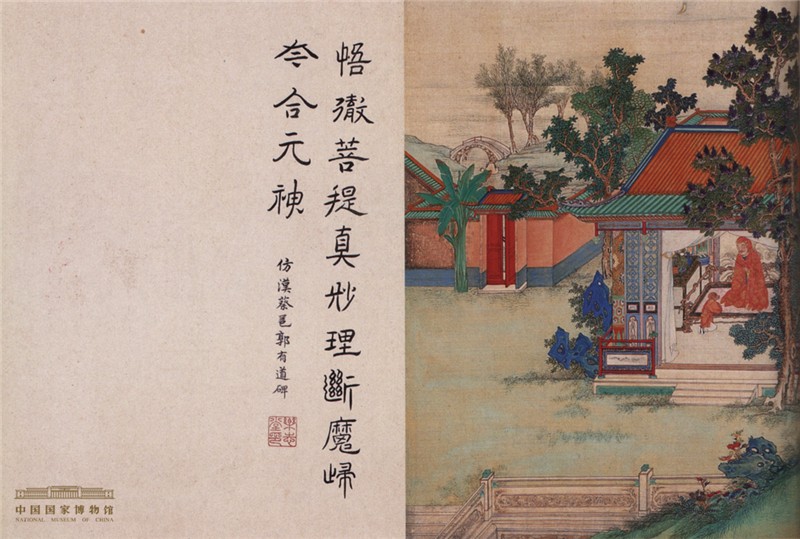 悟徹菩提真玅理斷魔歸
夲合元神
仿漢蔡邕郭有道碑
中国国家博物馆
NATIONAL MUSEUM OF CHINA